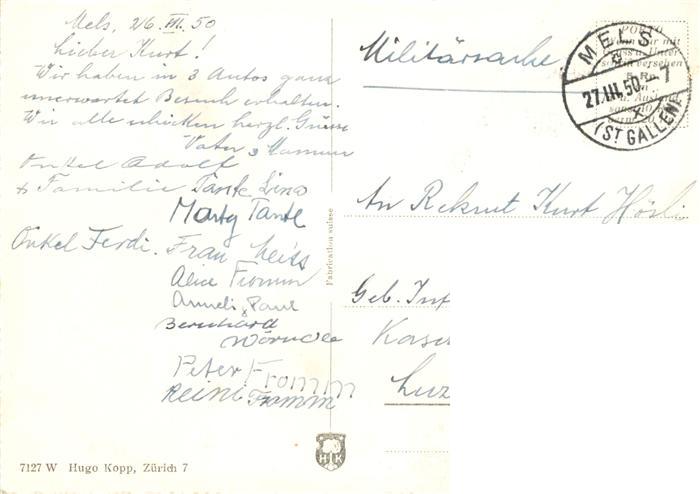 Mels, 26. III. 50
Lieber Kurt!
Wir haben in 3 Autos ganz
unerwartet Besuch erhalten.
Wir alle schicken herzl. Grüsse
Vater & Mamma
Onkel Adolf
+ Familie Tante Lina
Marty Tante
Onkel Ferdi. Frau Meiss
Alice Fromm
Anneli & Paul
Bernhard
Wörndle
Peter Fromm
Reini Fromm
7127 W Hugo Kopp, Zürich 7
HK
Fabrication suisse
Militärsache
PORTO
MELS
27.III.50.-7
(ST GALLEN)
An Rekrut Kurt Hösli
Geb. Inf
Kase
Luz